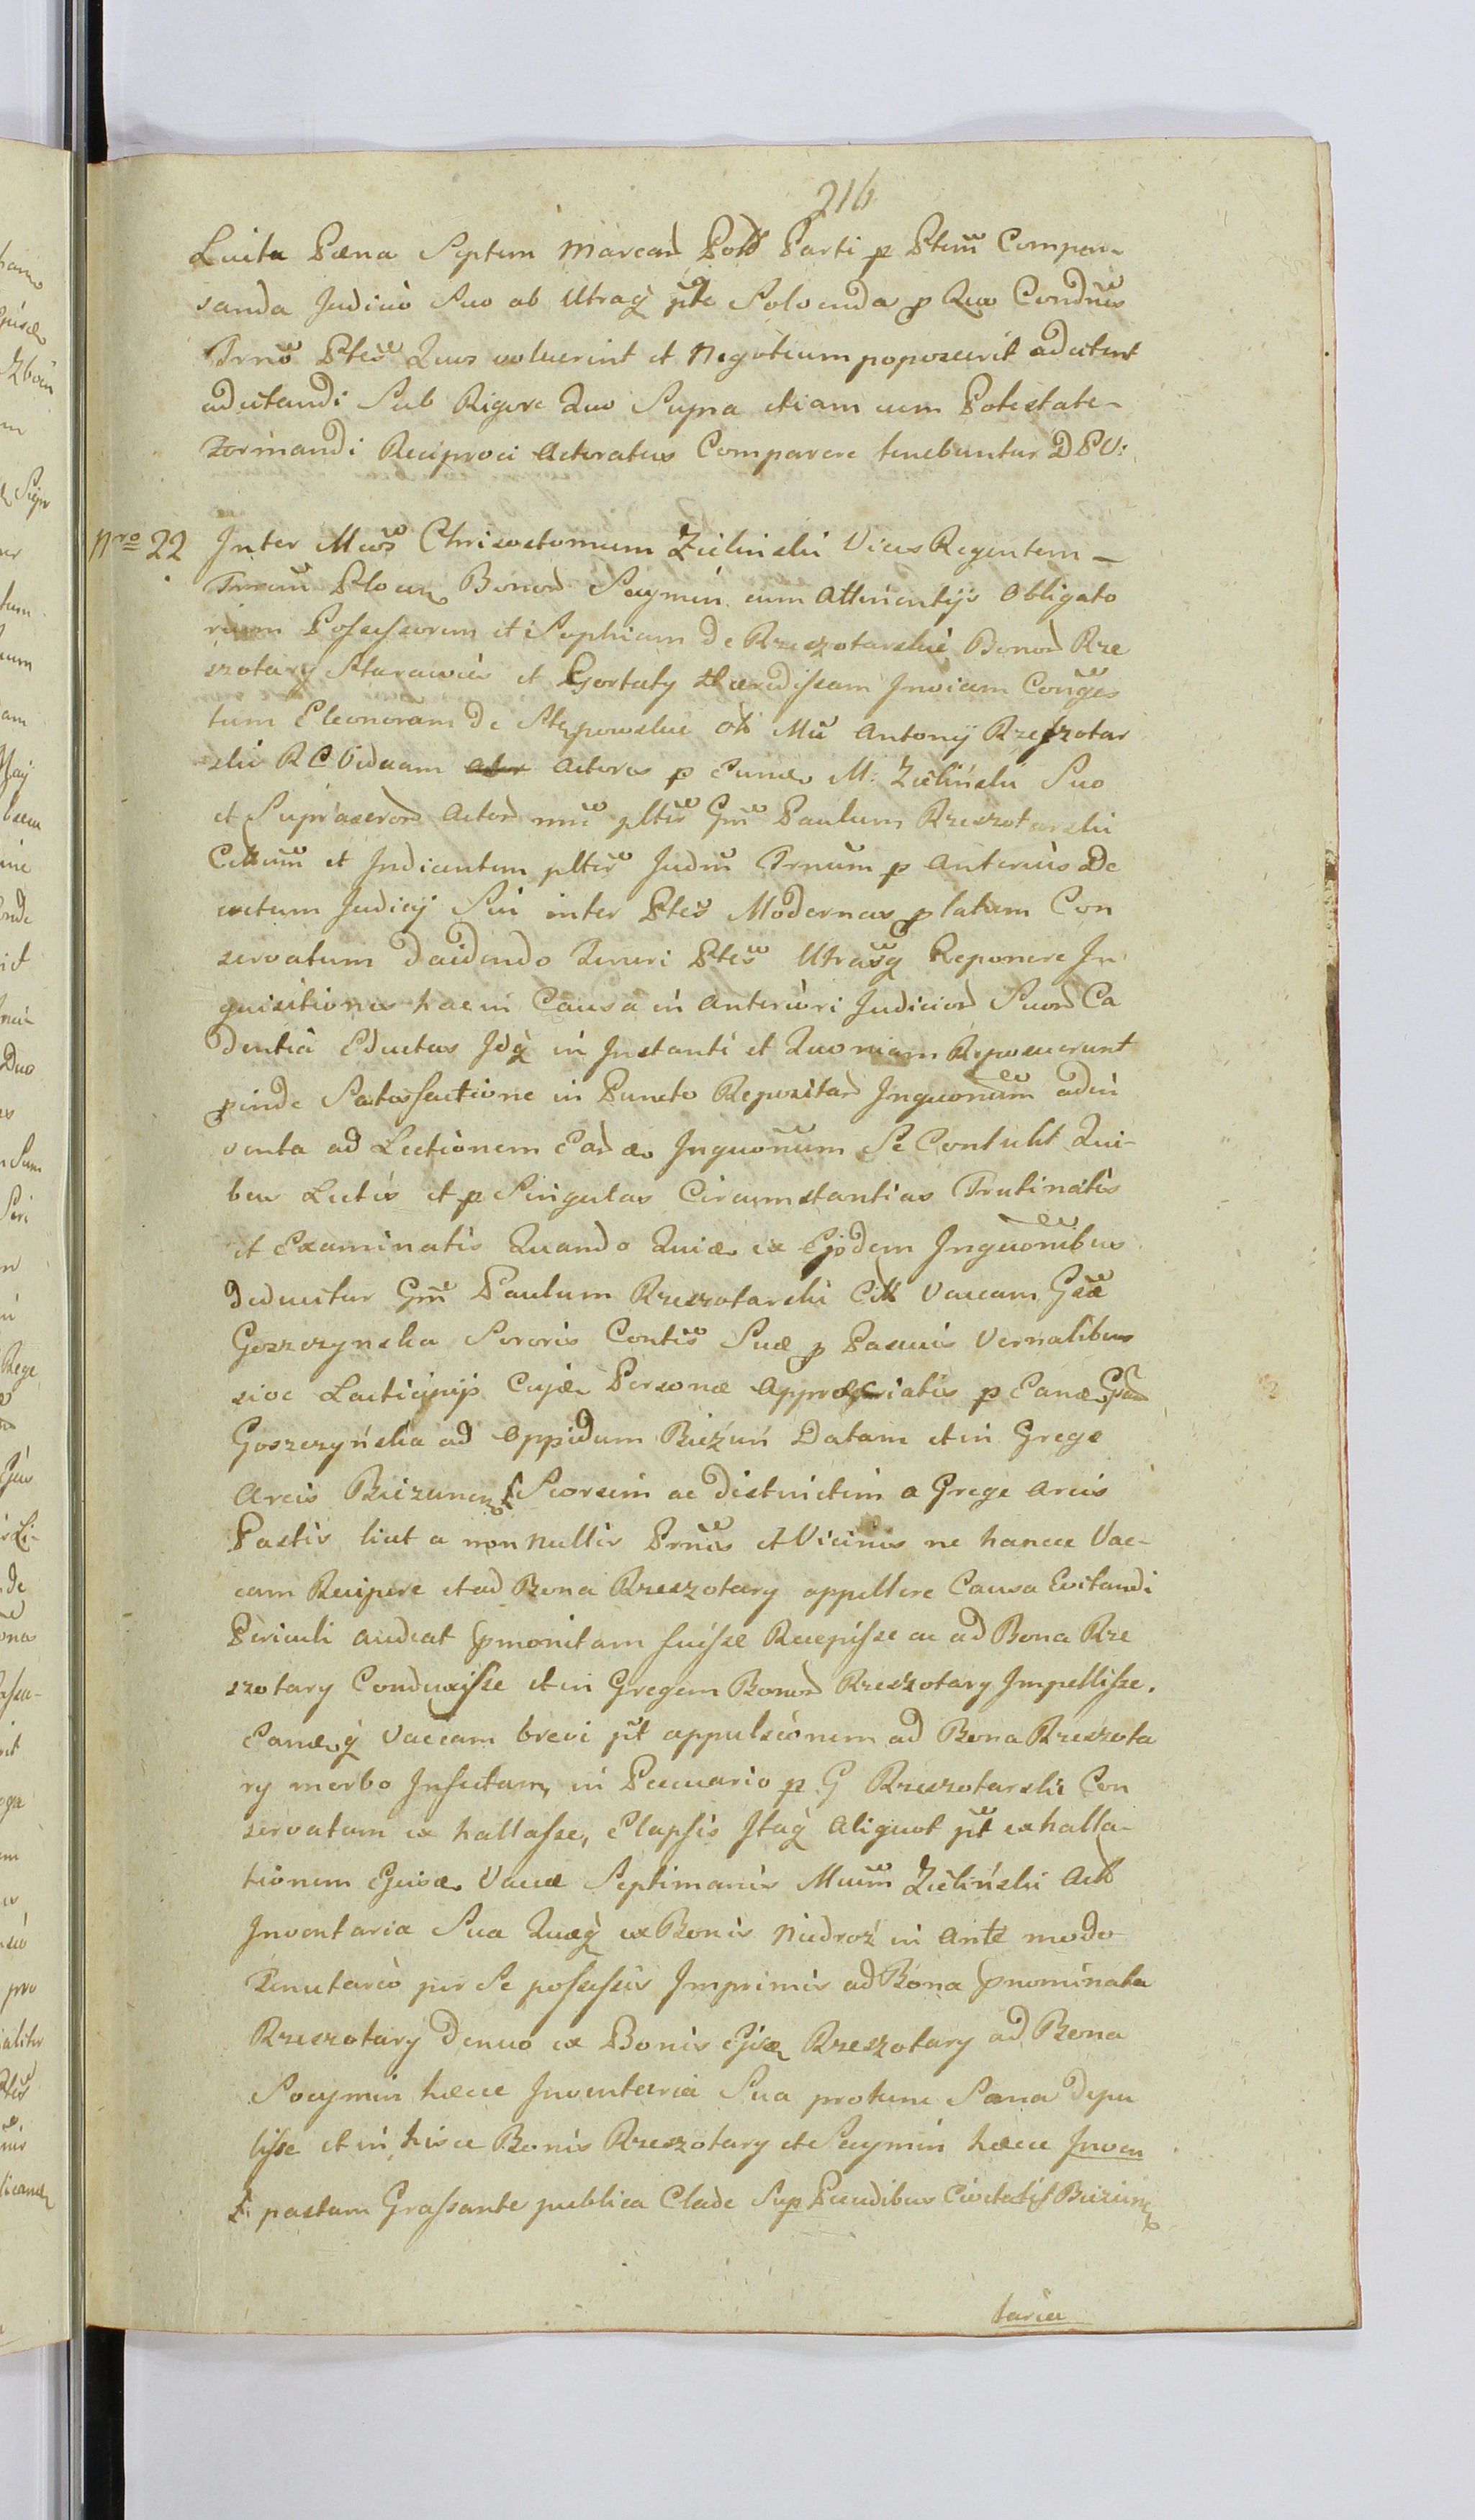 216
Luita Pæna Septem Marcar Polt Parti p Ptem Compen-
sanda Judicio Suo ab Utraq pte Solvenda p Quo Condnis
Trnõ Ptes Quos voluerint et Negotium poposcerit adcitent
adcitandi Sub Rigore Quo Supra etiam cum Potestate
formandi Reciproci Actoratus Comparere tenebuntur DPV:
Nro 22 Inter Mcos Chrisostomum Zielinski Vices Regentem
Trrem Plocen Bonor Secymin cum Attinentijs Obligato
rium Possessorem et Sophiam de Rzeszotarskie Bonor Rze
szotary Starawies et Gortaty Hæredissam Inviam Conges
tum Eleonoram de Stępowskie oli Mci Antonij Rzeszotar
ski R C Viduam Actores p Eund M: Zieliński Suo
et Suprascror Actor nnie pltes Gm Paulum Rzeszotarski
Cittum et Indicantem pltes Judm Trnum p Anterius De
cretum Judicij Sui inter Ptes Modernas p latum Con
servatum daidendo Queri Ptes Utrasq Reponere In
quisitiones hac in Causa in Anteriori Judicior Suor Ca
dentia Eductas Idq in Instanti et Quoniam Reposuerunt
pinde Satisfactione in Puncto Repositar Inquonum adin
venta ad Lectionem Ear Inquonum Se Contulit Qui-
bus Lectis et p Singulas Circumstantias Trutinatis
et Examinatis Quando Quid ex Ejsdem Inquonibus
deducitur Gm Paulum Rzeszotarski Citt Vaccam Gsæ
Goszczynska Sororis Contis Suæ p Pascuis Vernalibus
sive Lacticinijs Cujd Personæ Appropriatis p Eand Gsam
Goszczyńska ad Oppidum Bieżuń Datam et in Grege
Arcis Biezunen Seorsim ac distinctim a Grege Arcis
Pastis licet a non nullis Prnis et Vicinis ne hancce Vac-
cam Recipere et ad Bona Rzeszotary appellere Causa Evitandi
Periculi audeat pmonitam fuisse Recepisse ac ad Bona Rze
szotary Conduxisse et in Gregem Bonor Rzeszotary Impellisse.
Eandq Vaccam brevi pt appulsionem ad Bona Rzeszota
ry morbo Infectam, in Pecuario p G Rzeszotarski Con
servatam ex hallasse, Elapsis Itaq Aliquot pt exhalla-
tionem Ejusd Vaccæ Septimanis Mcum Zieliński Act
Inventaria Sua Quæq ex Bonis Niedroż in Ante modo
Tenutario per Se possessis Imprimis ad Bona pnominata
Rzeszotary Denuo ex Bonis Ejsd Rzeszotary ad Bona
Socymin hæcce Inventaria Sua protunc Sana depu
lisse et in hisce Bonis Rzeszotary et Secymin hæcce Inven
pastam Grassante publica Clade Sup Pecudibus Civitatis Biezunen
taria